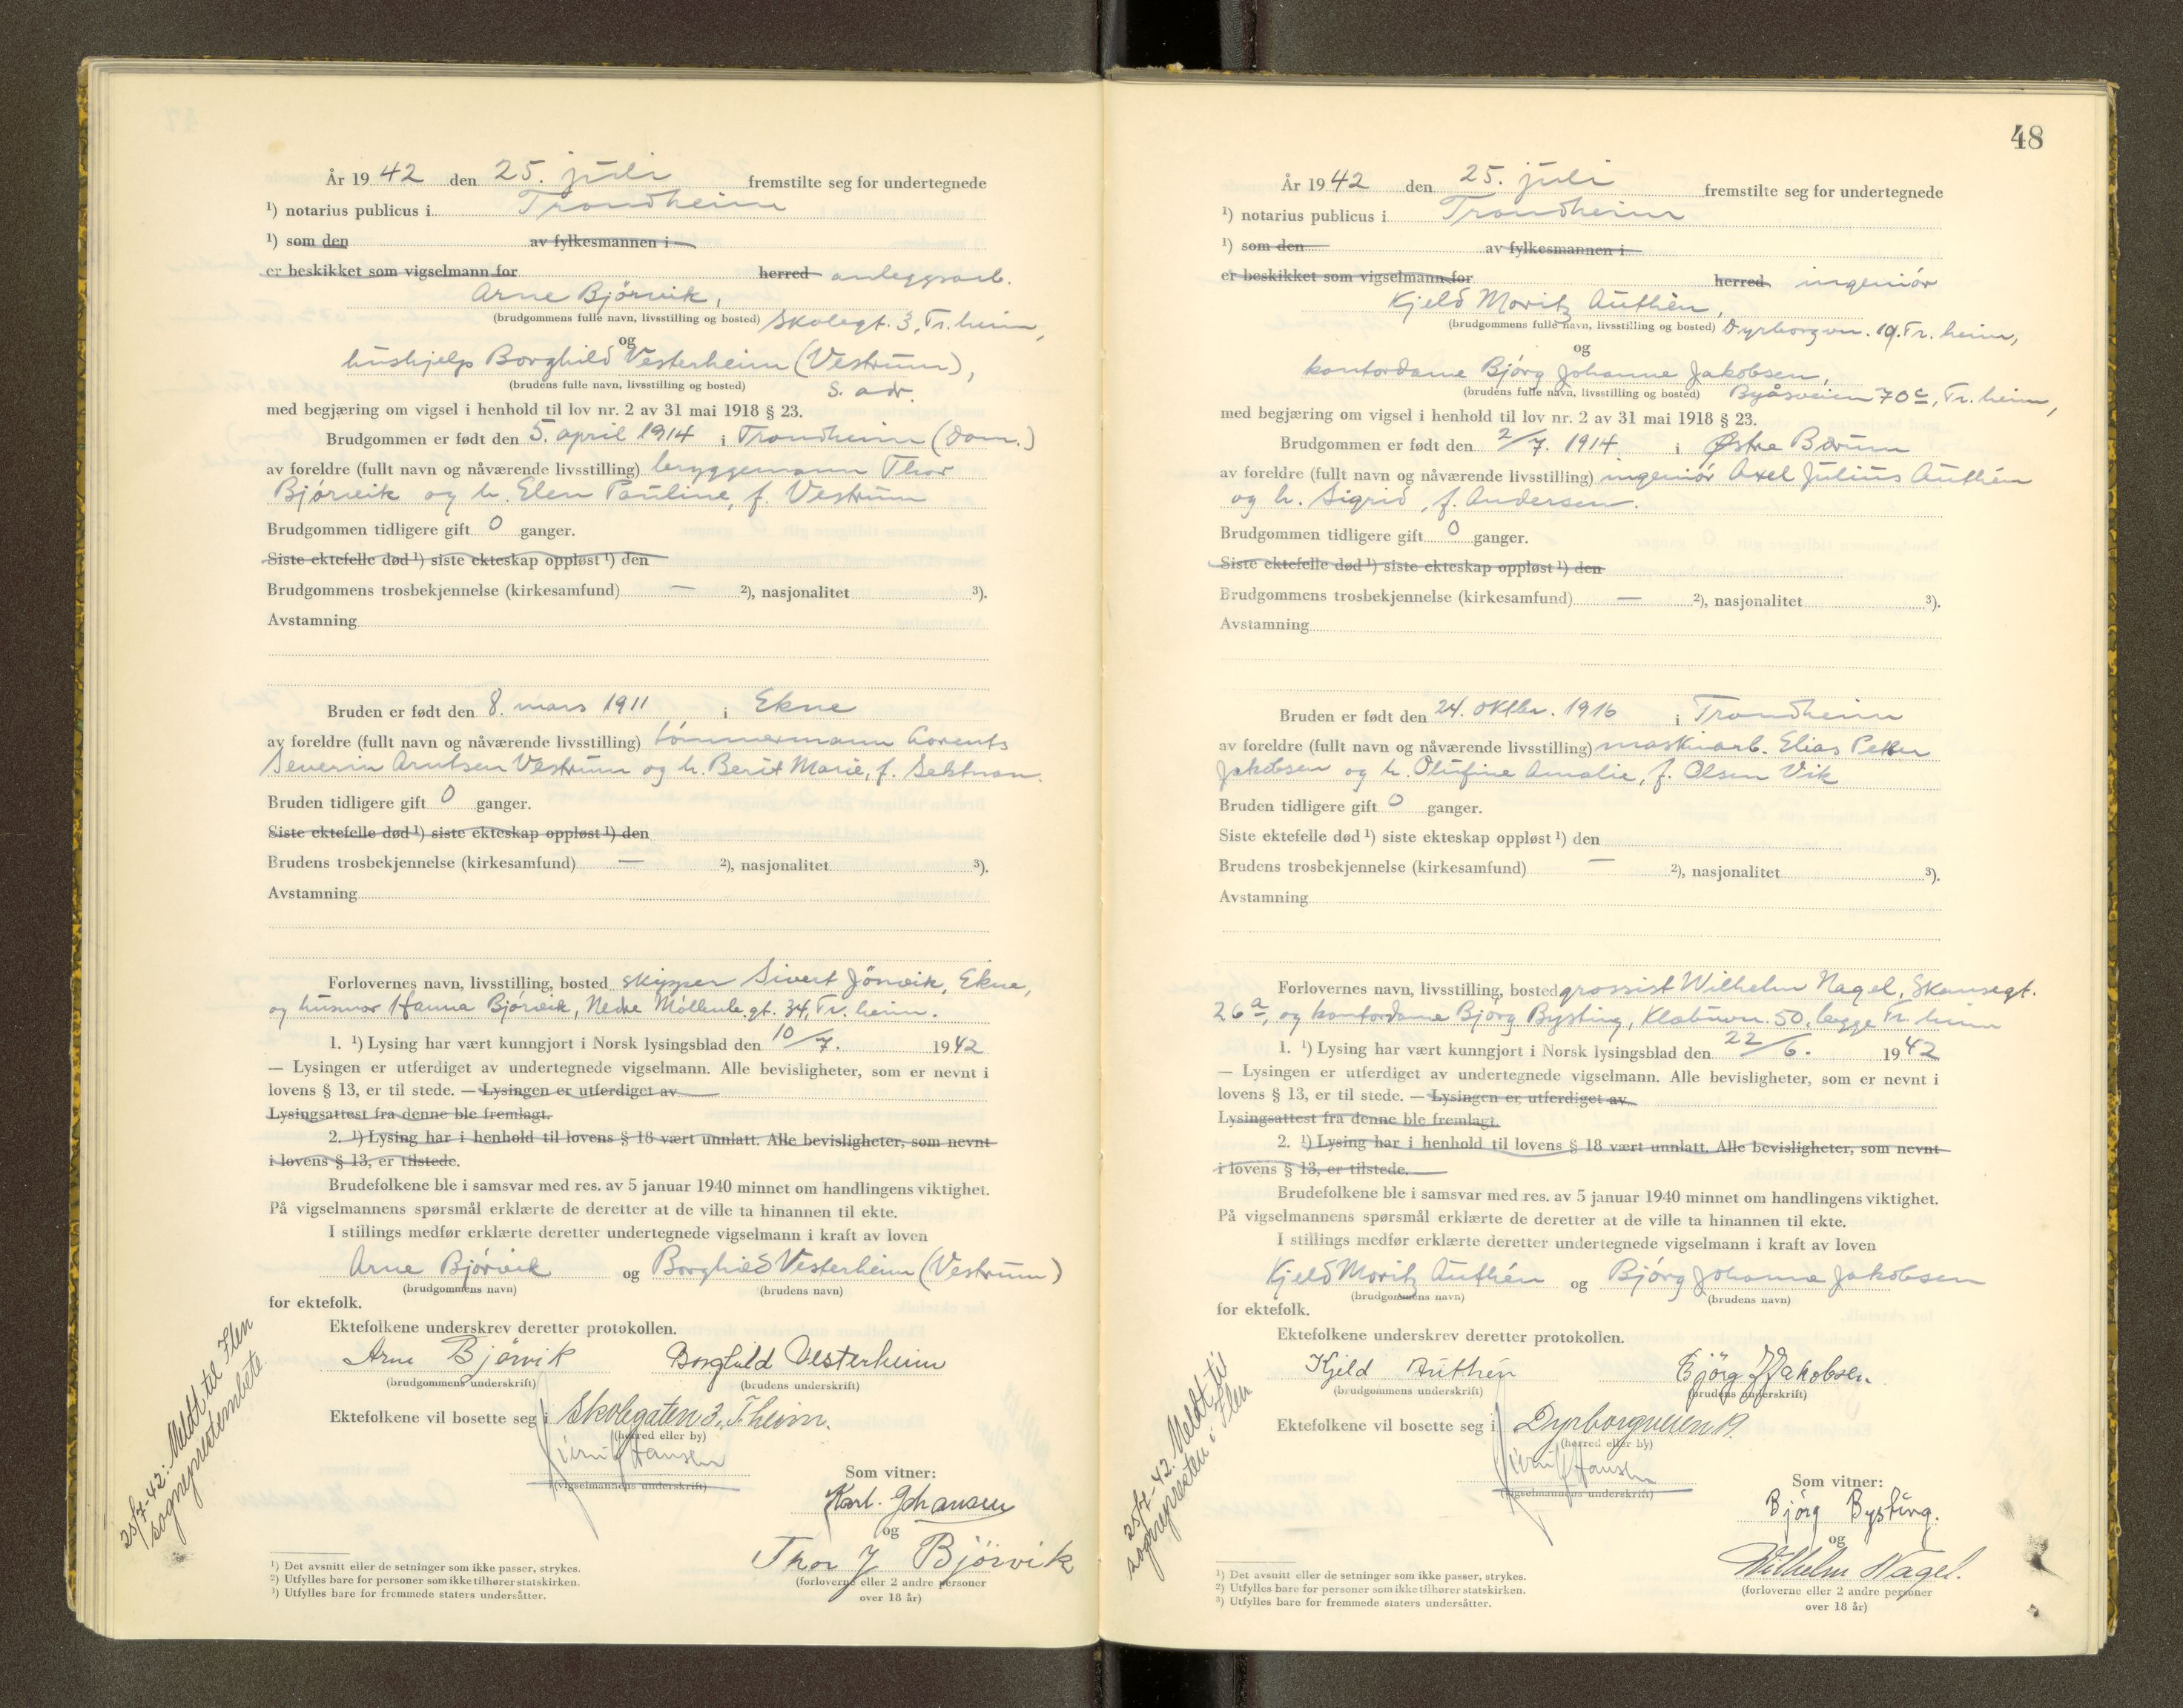 År 1942 den 25. juli fremstilte seg for undertegnede
¹) notarius publicus i Trondheim
¹) som den av fylkesmannen i
er beskikket som vigselmann for herred anleggsarb.
Arne Björvik,
(brudgommens fulle navn, livsstilling og bosted) Skolegt. 3, Tr.heim,
og
hushjelp Borghild Vesterheim (Vestrum),
(brudens fulle navn, livsstilling og bosted) s. adr.
med begjæring om vigsel i henhold til lov nr. 2 av 31 mai 1918 § 23.
Brudgommen er født den 5. april 1914 i Trondheim (Dom.)
av foreldre (fullt navn og nåværende livsstilling) bryggemann Thor
Björvik og h. Elen Pauline, f. Vestrum
Brudgommen tidligere gift 0 ganger.
Siste ektefelle død ¹) siste ekteskap oppløst ¹) den
Brudgommens trosbekjennelse (kirkesamfund) — ²), nasjonalitet ³).
Avstamning
Bruden er født den 8. mars 1911 i Ekne
av foreldre (fullt navn og nåværende livsstilling) tömmermann Lorents
Severin Arntsen Vestrum og h. Berit Marie, f.
Bruden tidligere gift 0 ganger.
Siste ektefelle død ¹) siste ekteskap oppløst ¹) den
Brudens trosbekjennelse (kirkesamfund) — ²), nasjonalitet ³).
Avstamning
Forlovernes navn, livsstilling, bosted skipper Sivert Jönvik, Ekne,
og husmor Hanna Björvik, Nedre Möllenb.gt. 34, Tr.heim.
1. ¹) Lysing har vært kunngjort i Norsk lysingsblad den 10/7. 1942
— Lysingen er utferdiget av undertegnede vigselmann. Alle bevisligheter, som er nevnt i
lovens § 13, er til stede. — Lysingen er utferdiget av
Lysingsattest fra denne ble fremlagt.
2. ¹) Lysing har i henhold til lovens § 18 vært unnlatt. Alle bevisligheter, som nevnt
i lovens § 13, er tilstede.
Brudefolkene ble i samsvar med res. av 5 januar 1940 minnet om handlingens viktighet.
På vigselmannens spørsmål erklærte de deretter at de ville ta hinannen til ekte.
I stillings medfør erklærte deretter undertegnede vigselmann i kraft av loven
Arne Björvik og Borghild Vesterheim (Vestrum)
(brudgommens navn) (brudens navn)
for ektefolk.
Ektefolkene underskrev deretter protokollen.
Arne Björvik Borghild Vesterheim
(brudgommens underskrift) (brudens underskrift)
Ektefolkene vil bosette seg i Skolegaten 3, T.heim.
(herred eller by)
Hansen
(vigselmannens underskrift)
Som vitner:
Karl. Johansen
og
Thor J Björvik
(forloverne eller 2 andre personer
over 18 år)
25/7-42: Meldt til Ilen
sogneprestembete.
¹) Det avsnitt eller de setninger som ikke passer, strykes.
²) Utfylles bare for personer som ikke tilhører statskirken.
³) Utfylles bare for fremmede staters undersåtter.
48
År 1942 den 25. juli fremstilte seg for undertegnede
¹) notarius publicus i Trondheim
¹) som den av fylkesmannen i
er beskikket som vigselmann for herred ingeniör
Kjeld Moritz Authén,
(brudgommens fulle navn, livsstilling og bosted) Dyrborgvn. 19, Tr.heim,
og
kontordame Björg Johanne Jakobsen,
(brudens fulle navn, livsstilling og bosted) Byåsveien 70c, Tr.heim,
med begjæring om vigsel i henhold til lov nr. 2 av 31 mai 1918 § 23.
Brudgommen er født den 2/7. 1914 i Østre Bærum
av foreldre (fullt navn og nåværende livsstilling) ingeniör Axel Julius Authén
og h. Sigrid, f. Andersen.
Brudgommen tidligere gift 0 ganger.
Siste ektefelle død ¹) siste ekteskap oppløst ¹) den
Brudgommens trosbekjennelse (kirkesamfund) — ²), nasjonalitet ³).
Avstamning
Bruden er født den 24. oktbr. 1916 i Trondheim
av foreldre (fullt navn og nåværende livsstilling) maskinarb. Elias Petter
Jakobsen og h. Olufine Amalie, f. Olsen Vik
Bruden tidligere gift 0 ganger.
Siste ektefelle død ¹) siste ekteskap oppløst ¹) den
Brudens trosbekjennelse (kirkesamfund) — ²), nasjonalitet ³).
Avstamning
Forlovernes navn, livsstilling, bosted grossist Wilhelm Nagel, Skansegt.
26a, og kontordame Björg Bysting, Klæbuvn. 50, begge Tr.heim
1. ¹) Lysing har vært kunngjort i Norsk lysingsblad den 22/6. 1942
— Lysingen er utferdiget av undertegnede vigselmann. Alle bevisligheter, som er nevnt i
lovens § 13, er til stede. — Lysingen er utferdiget av
Lysingsattest fra denne ble fremlagt.
2. ¹) Lysing har i henhold til lovens § 18 vært unnlatt. Alle bevisligheter, som nevnt
i lovens § 13, er tilstede.
Brudefolkene ble i samsvar med res. av 5 januar 1940 minnet om handlingens viktighet.
På vigselmannens spørsmål erklærte de deretter at de ville ta hinannen til ekte.
I stillings medfør erklærte deretter undertegnede vigselmann i kraft av loven
Kjeld Moritz Authén og Björg Johanne Jakobsen
(brudgommens navn) (brudens navn)
for ektefolk.
Ektefolkene underskrev deretter protokollen.
Kjeld Authén Björg J Jakobsen.
(brudgommens underskrift) (brudens underskrift)
Ektefolkene vil bosette seg i Dyrborgveien 19.
(herred eller by)
Hansen
(vigselmannens underskrift)
Som vitner:
Björg Bysting.
og
Wilhelm Nagel.
(forloverne eller 2 andre personer
over 18 år)
25/7-42. Meldt til
sognepresten i Ilen
¹) Det avsnitt eller de setninger som ikke passer, strykes.
²) Utfylles bare for personer som ikke tilhører statskirken.
³) Utfylles bare for fremmede staters undersåtter.